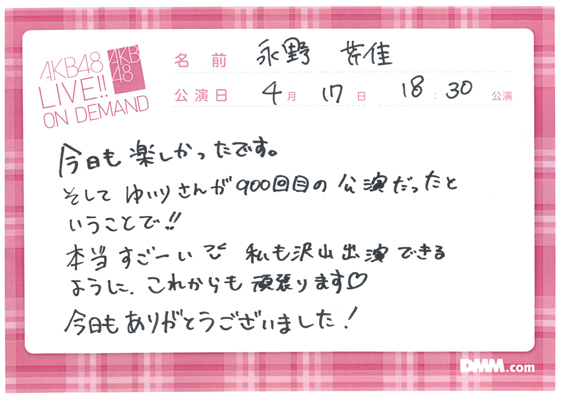 AKB48
LIVE!!
ON DEMAND
AKB
48
名前 永野 芹佳
公演日 4月 17日 18:30 公演
今日も楽しかったです。
そしてゆいりさんが900回目の公演だったと
いうことで!!
本当すごーい 私も沢山出演できる
ように、これからも頑張ります♡
今日もありがとうございました!
DMM.com